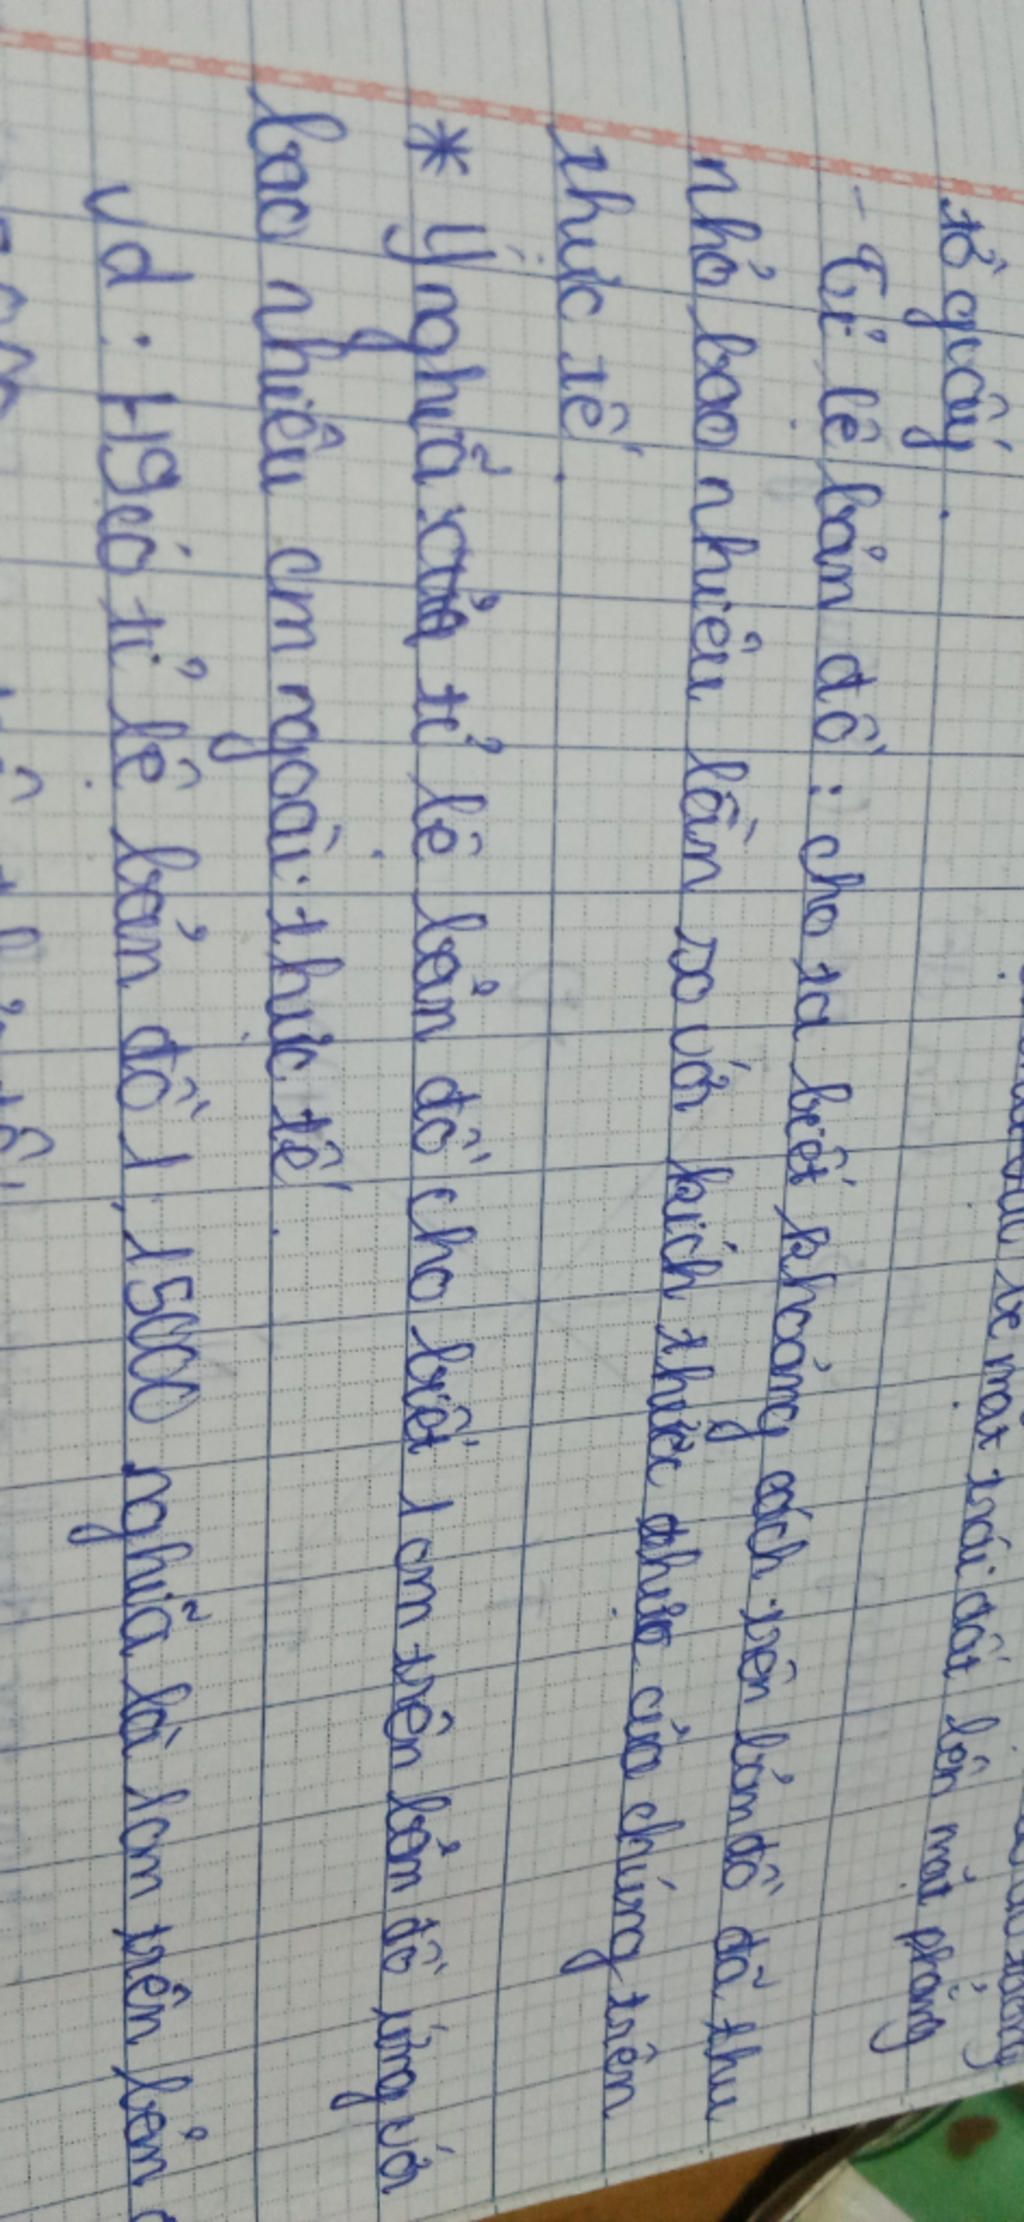 bề mặt trái đất lên mặt phẳng
tờ giấy.
- Tỉ lệ bản đồ: cho ta biết khoảng cách trên bản đồ đã thu
nhỏ bao nhiêu lần so với kích thước thực của chúng trên
thực tế.
* Ý nghĩã của tỉ lệ bản đồ cho biết 1 cm trên bản đồ ứng với
bao nhiêu cm ngoài thực tế.
vd: H9 có tỉ lệ bản đồ 1, 1500 nghĩã là 1cm trên bản